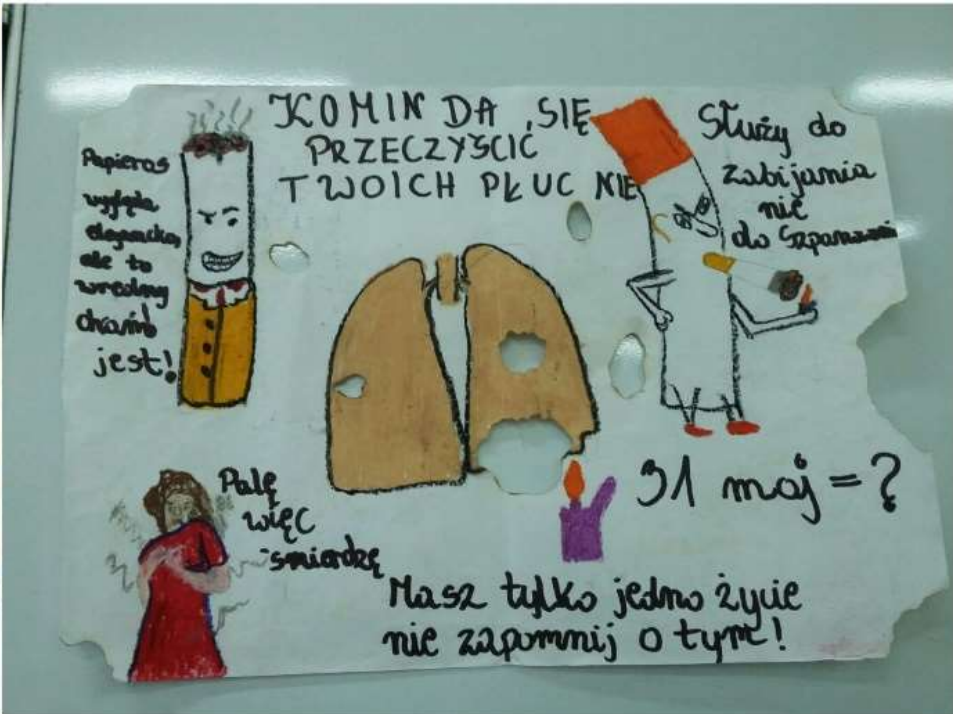 KOMIN DA SIĘ
PRZECZYŚCIĆ
TWOICH PŁUC NIE
Papieros
wygląda
elegancko,
ale to
wredny
drań
jest!
Służy do
zabijania
nie
do Szpanowania
31 maj = ?
Palę
więc
śmierdzę
Masz tylko jedno życie
nie zapomnij o tym!